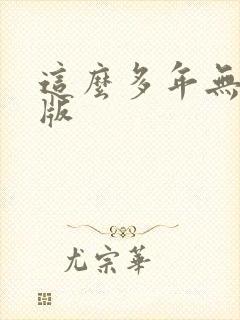 這麼多年無
版
尤宗華